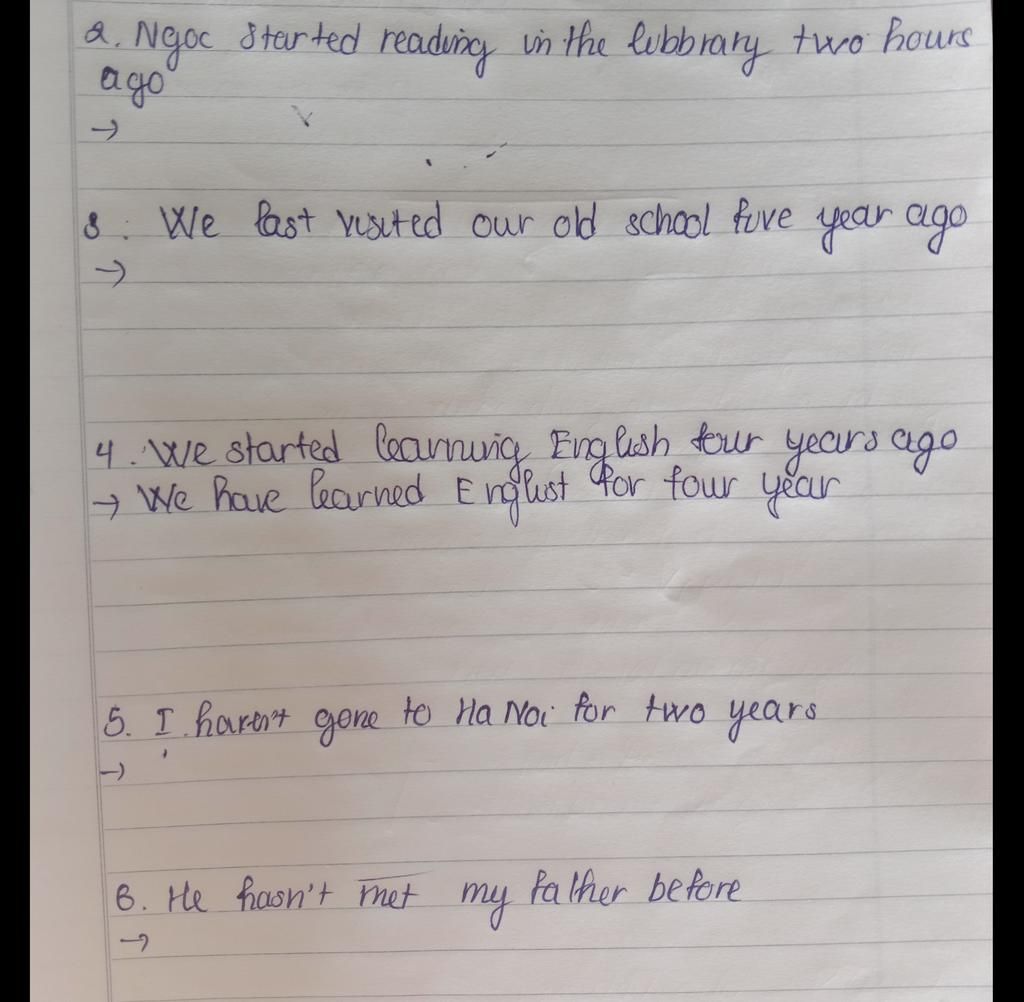 2. Ngoc started reading in the lubbrary two hours
ago
→
3. We last visited our old school five year ago
→
4. We started learning English four years ago
→ We have learned Englist for four year
5. I haven't gone to Ha Noi for two years
→
6. He hasn't met my father before
→